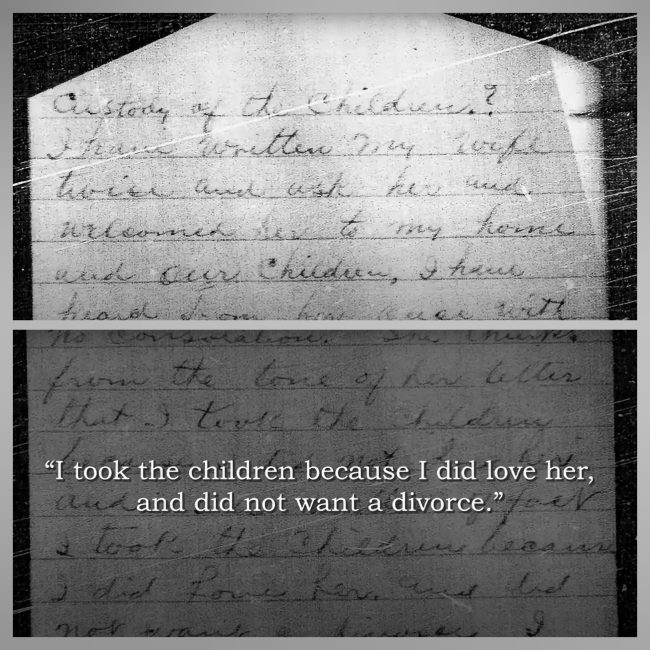 Custody of the Children.?
I have written my wife
twice and ask her and
welcomed her to my home
and our Children, I have
heard from her once with
no Consolation. She thinks
from the tone of her letter
that I took the children
“I took the children because I did love her,
and did not want a divorce.”
and fact
I took the Children because
I did Love her. and did
not want a divorce I